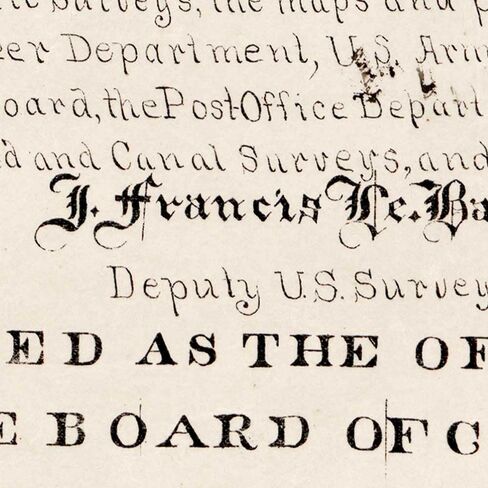 Surveys, the maps and
eer Department, U.S. Arm
oard, the Post-Office Depart
d and Canal Surveys, and
J. Francis Le. Ba
Deputy U.S. Survey
ED AS THE OF
E BOARD OF C